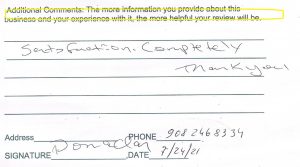 Additional Comments: The more information you provide about this
business and your experience with it, the more helpful your review will be.
Satisfaction. Completely
Thank you!
Address PHONE 908 246 8334
SIGNATURE DATE 7/24/21